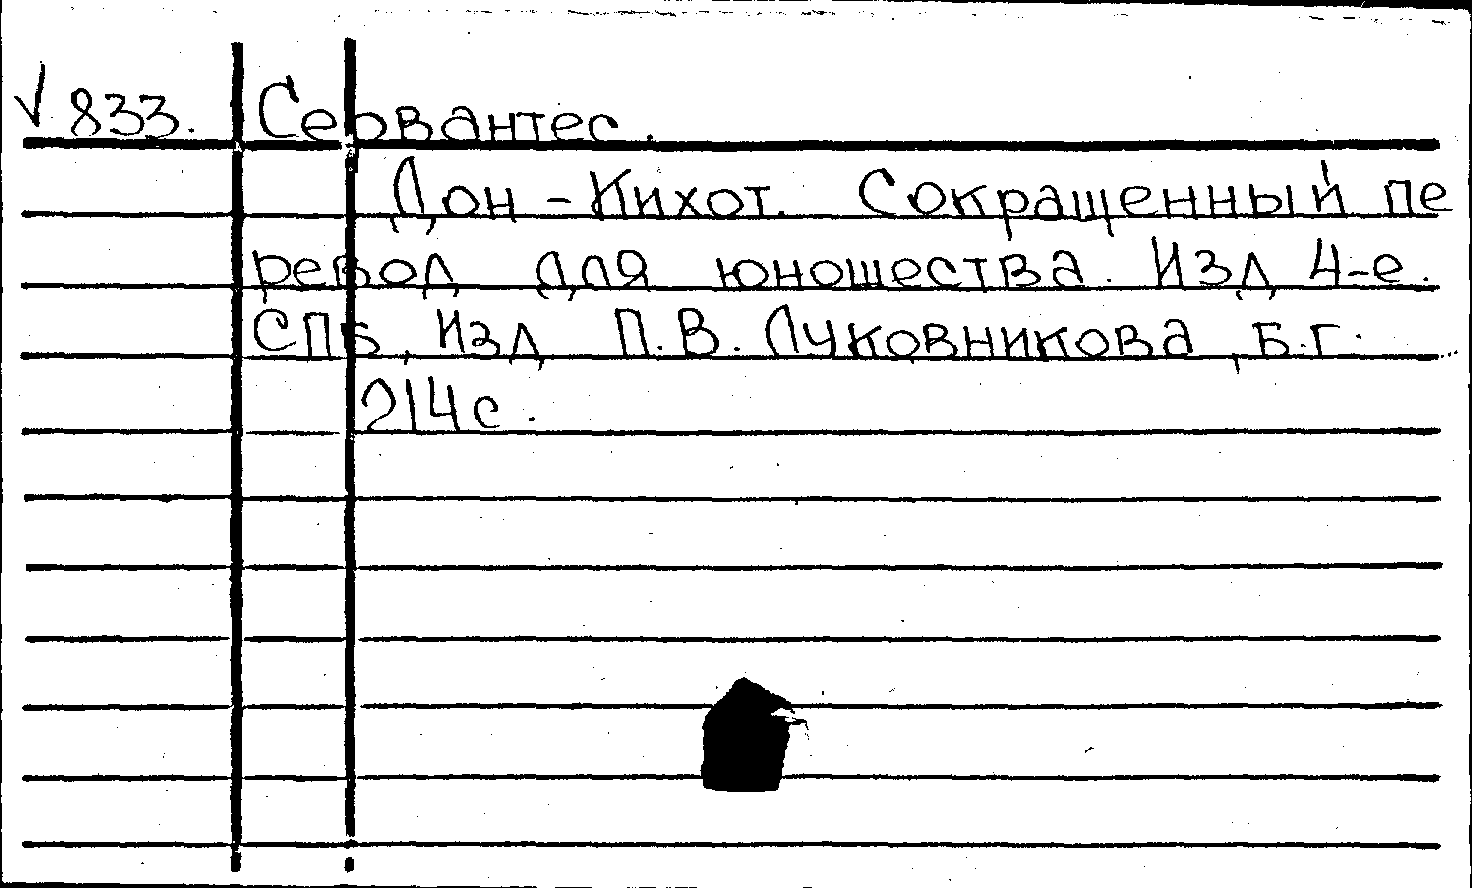 √ 833. Сервантес.
Дон-Кихот. Сокращенный пе
ревод для юношества. Изд 4-е.
СПБ, Изд П.В. Луковникова, Б.г.
214с.